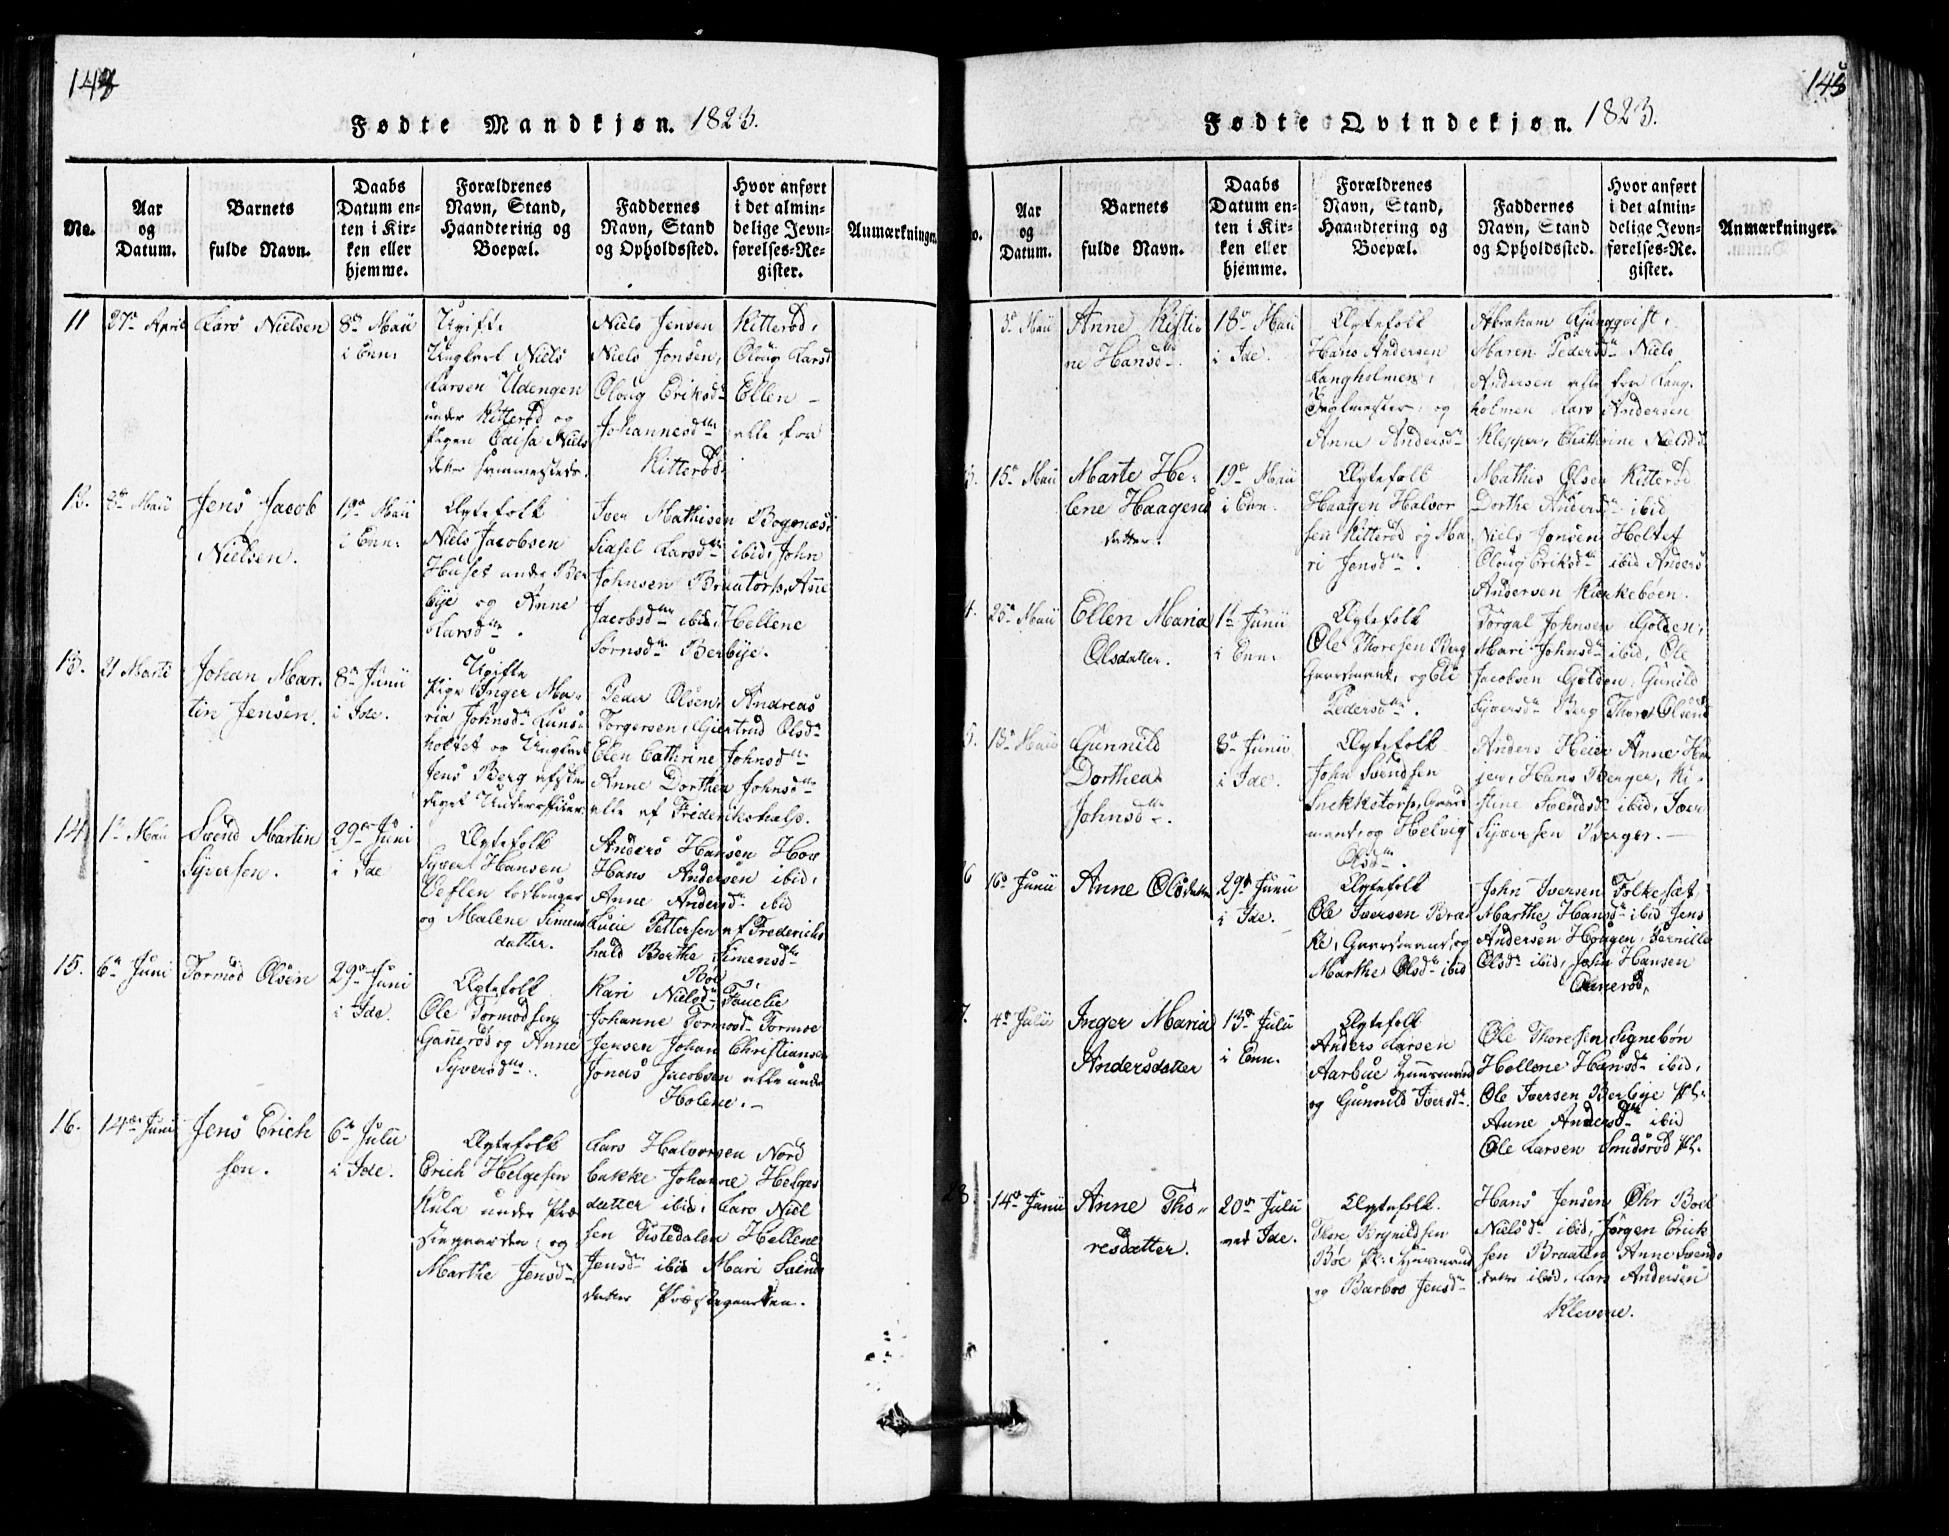 144
Fødte Mandkjøn. 1823.
No.
Aar
og
Datum.
Barnets
fulde Navn.
Daabs
Datum en-
ten i Kir-
ken eller
hjemme.
Forældrenes
Navn, Stand,
Haandtering og
Boepæl.
Faddernes
Navn, Stand
og Opholdssted.
Hvor anført
i det almin-
delige Jevn-
førelses-Re-
gister.
Anmærkninger.
11
27de April
Lars Nielsen
8de Maii
i Enn:
Ugifte
Ungkarl Niels
Larsen Udengen
under Kitterød og
Pigen Edisa Niels
datter sammesteds.
Niels Jensen Kitterød,
Niels Jonsen, Oloug Larsd
Oloug Eriksdr Ellen –
Johannesdtr alle fra
Kitterød
12.
8de Maii
Jens Jacob
Nielsen.
19de Maii
i Enn:
Ægtefolk
Niels Jacobsen
Huset under Ber
bye og Anne
Larsdtr.
Iver Mathisen Bognæs,
Siasel Larsdtr ibid, John
Johnsen Braatorp, Anne
Jacobsdtr ibid, Hellene
Sørnsdr Berbye.
13.
21 Martii
Johan Mar-
tin Jensen.
8de Junii
i Ide.
Ugifte
Pige Inger Ma-
ria Johnsdr Luns-
holtet og Ungkarl
Jens Berg afske-
diget Underofficer.
Peder Olsen, Andreas
Torgersen, Giertrud Olsdr
Elen Cathrine Johnsdtr
Anne Dorthea Johnsdtr
alle af Frederikshald.
14.
1ste Maii
Svend Martin
Syversen.
29de Juni
i Ide
Ægtefolk
Syver Hansen
Veslen
og Malene Simens
datter.
Anders Hansen Hov
Hans Andersen ibid,
Anne Andersdr ibid
Lucie Pettersen af Frederichs
hald Berthe Simensdtr
Bøe
15.
6te Juni
Tormod Olsen
29de Juni
i Ide.
Ægtefolk
Ole Tormodsen
Gannerød og Anne
Syversdtr.
Kari Nielsdr
Johanne Tormodsdr Tormoe
Jensen Johan Christiansen
Jonas Jacobsen alle under
Holene. –
16.
14de Juni
Jens Erich
sen.
6te Julii
i Ide.
Ægtefolk
Erich Helgesen
Kula under Præ
stegaarden og
Marthe Jensdr
Lars Halvorsen Nord
bakke Johanne Helges
datter ibid, Lars Niel
sen Tistedalen Hellene
Jensdr ibid Mari Svends
datter Præstegaarden.
145
Fødte Qvindekjøn. 1823.
No.
Aar
og
Datum.
Barnets
fulde Navn.
Daabs
Datum en-
ten i Kir-
ken eller
hjemme.
Forældrenes
Navn, Stand,
Haandtering og
Boepæl.
Faddernes
Navn, Stand
og Opholdssted.
Hvor anført
i det almin-
delige Jevn-
førelses-Re-
gister.
Anmærkninger.
3de Maii
Anne Kisti-
ne Hansdtr.
18de Maii
i Ide.
Ægtefolk
Hans Andersen
Langholmen,
Teglmester, og
Anne Andersdr
Abraham Ljungqvist,
Maren Pedersdr Niels
Andersen alle fra Lang-
holmen Lars Andersen
Klepper, Chathrine Nielsdr
3.
15de Maii
Marte He-
lene Haagens
datter.
19de Maii
i Enn.
Ægtefolk
Haagen Halvor
sen Kitterød og Ma-
ri Jensdtr.
Mathis Olsen Kitterød
Dorthe Andersdr ibid
Niels Jonsen Holtet
Oloug Eriksdr ibid Anders
Andersen Kirkebøen.
4.
25de Maii
Ellen Maria
Olsdatter.
1ste Junii
i Enn.
Ægtefolk
Ole Thoresen Berg
Gaardmand, og Eli
Pedersdtr.
Torgal Johnsen Gjølden,
Mari Johnsdr ibid, Ole
Jacobsen Gjølden, Gunild
Syversdr Berg Thore Olsen
5.
13de Maii
Gunnild
Dorthea
Johnsdtr.
8de Junii
i Ide.
Ægtefolk
John Svendsen
Snekkstorp, Gaard
mand, og Helvig
Olsdtr.
Anders Heier Anne He-
jer, Hans Berger, Ki-
stine Svendsdr ibid, Iver
Syversen Berger. –
6
16de Junii
Anne Olsdatter
29de Junii
i Ide.
Ægtefolk
Ole Iversen Bræk-
ke, Gaardmand, og
Marthe Olsdr ibid
John Iversen Folkesæt,
Marthe Hansdr ibid Jens
Andersen Hougen, Pernille
Olsdr ibid, John Hansen
Ganerød,
7.
4de Julii
Inger Maria
Andersdatter
13de Julii
i Enn.
Ægtefolk
Anders Larsen
Aarbue Huusmand
og Gunnild Iversdr.
Ole Thoresen Signebøn
Hellene Hansdr ibid,
Ole Iversen Berbye Pl.
Anne Andersdr ibid
Ole Larsen Smidsrød Pl.
28
14de Junii
Anne Tho-
resdatter.
20de Julii
ved Ide.
Ægtefolk.
Thore Brynildsen
Bøe Pl. Huusmand
og Barbro Jensdr
Hans Jensen Øhr Boel
Nielsdr ibid, Jørgen Erick
sen Braaten Anne Svends
datter ibid, Lars Andersen
Klevene.